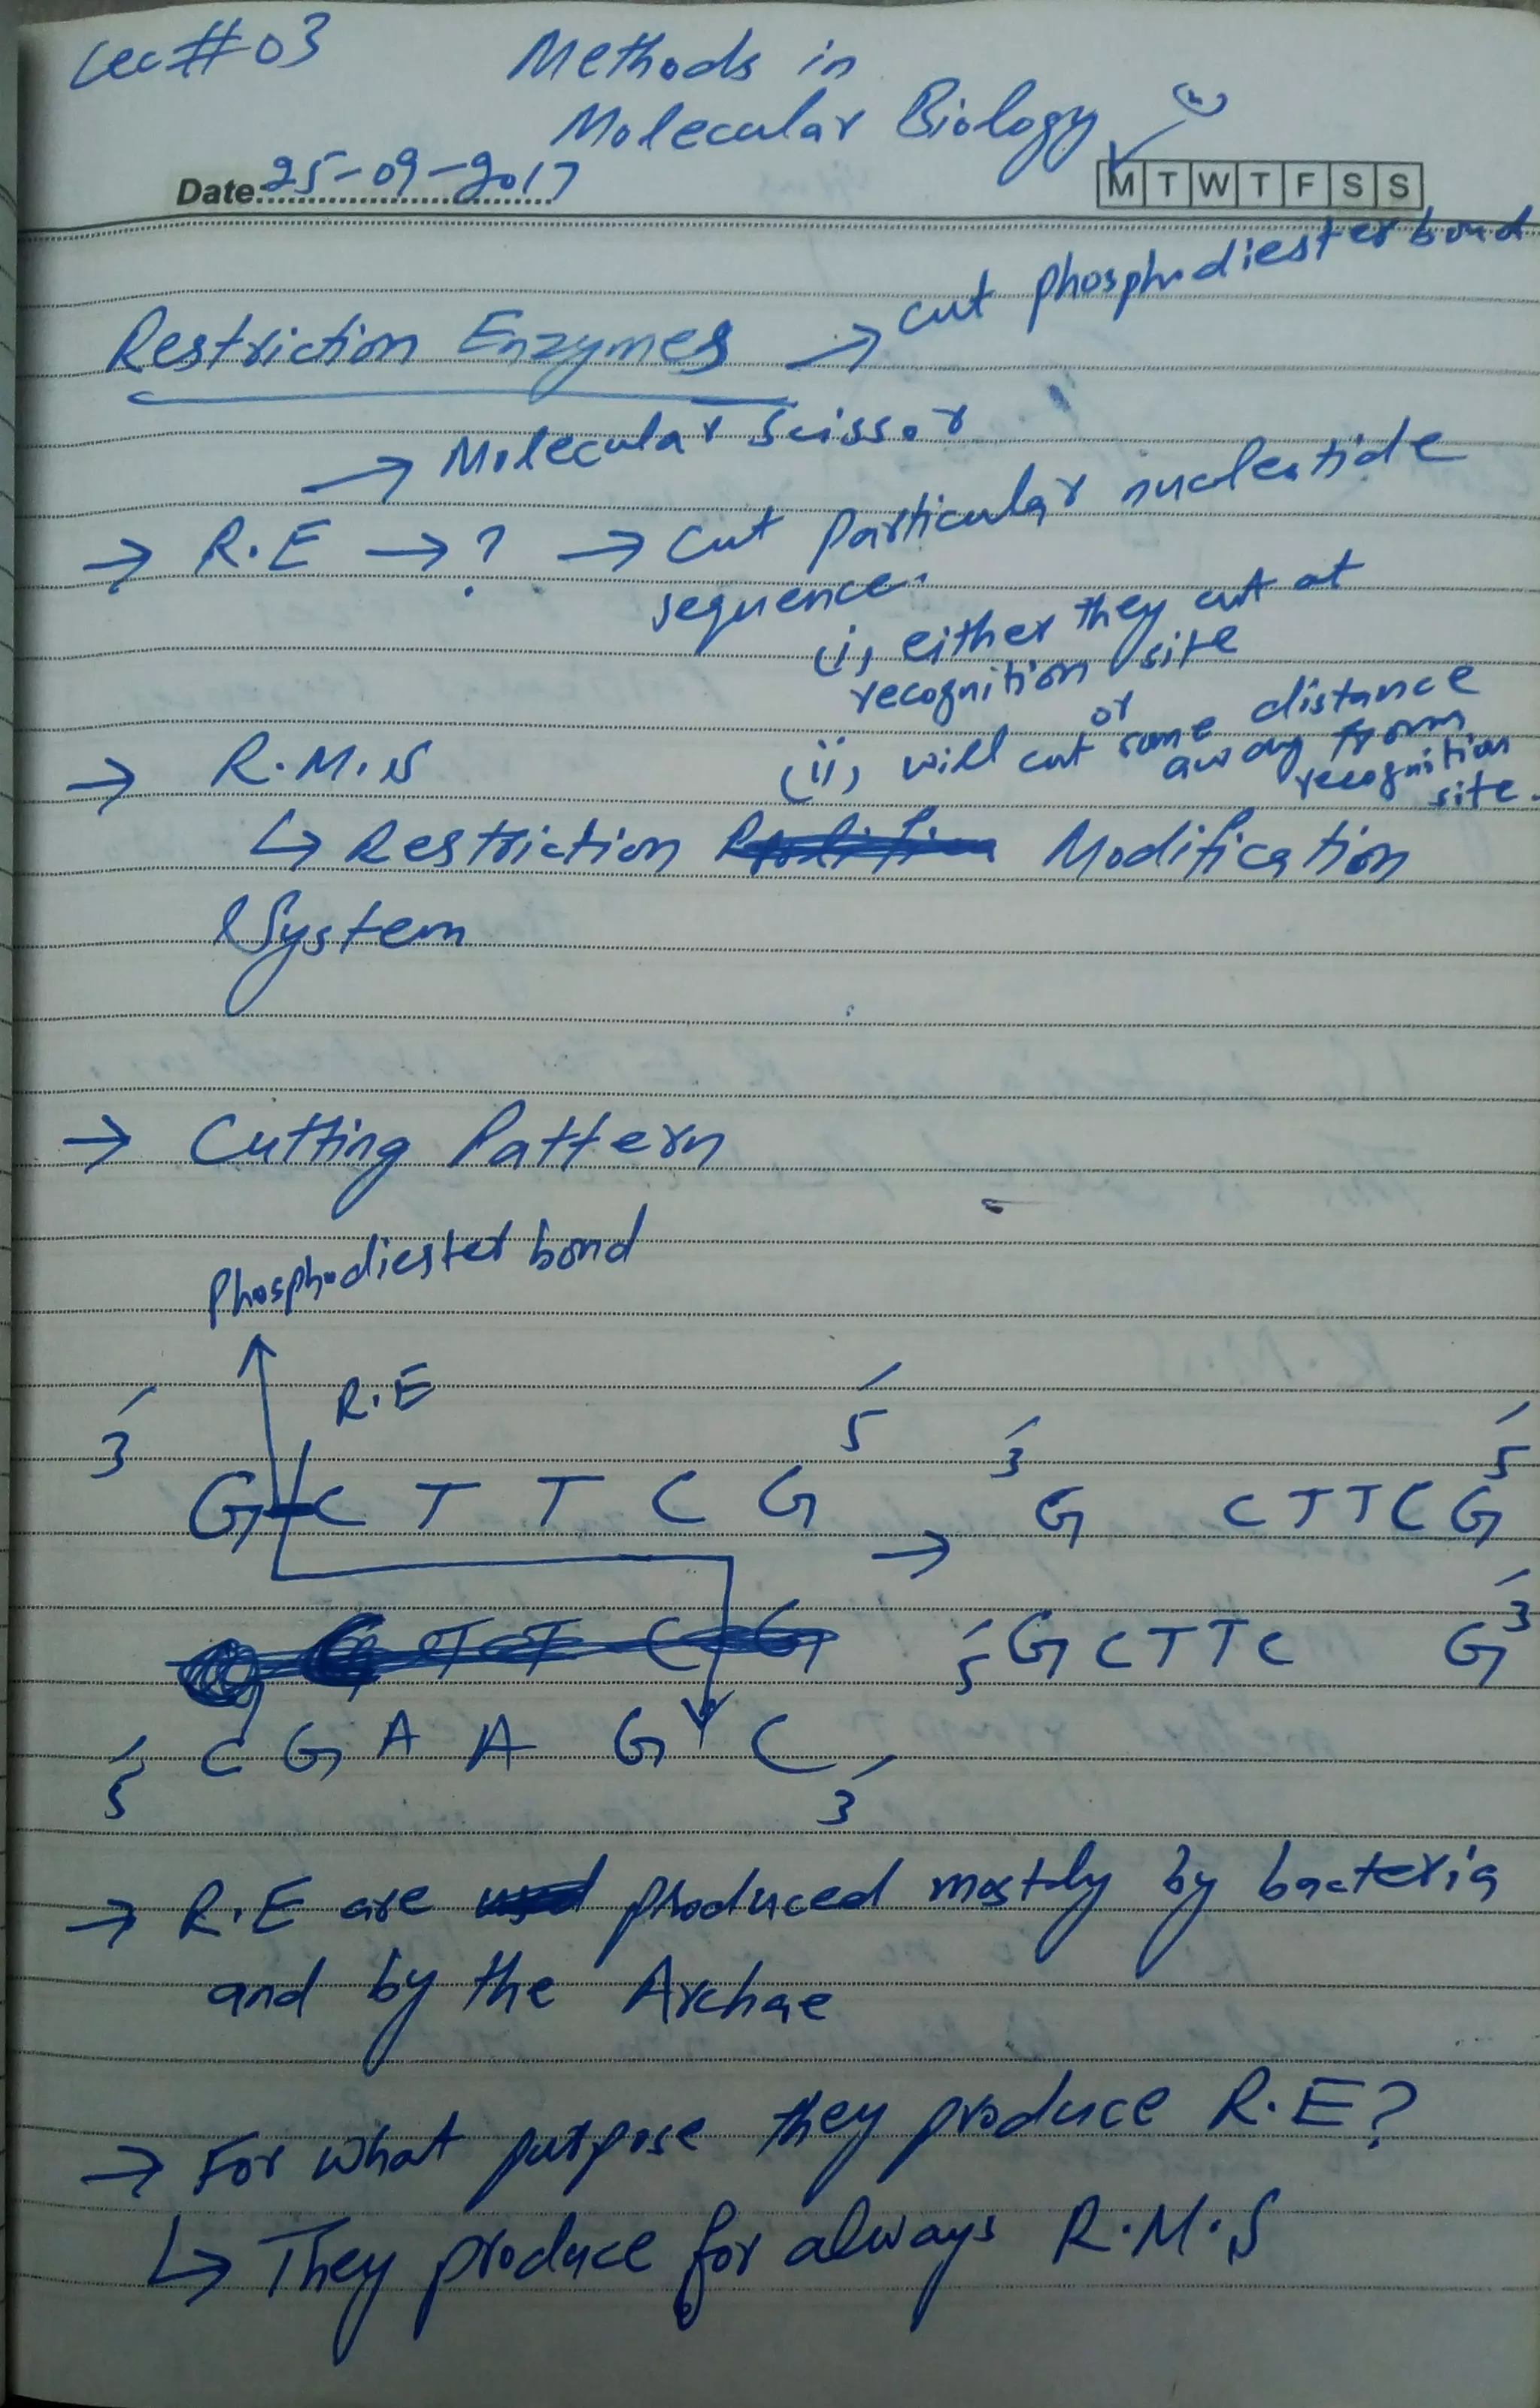 Lec#03
Methods in
Molecular Biology
Date 25-09-2017
M T W T F S S
Restriction Enzymes → cut phosphodiester bond
→ Molecular Scissor
→ R.E → ? → cut Particular nucleotide
sequence.
(i) either they cut at
recognition site
or
→ R.M.S
(ii) will cut some distance
away from
recognition
site.
↳ Restriction Modification
System
→ Cutting Pattern
Phosphodiester bond
R.E
3́ 5́ 3́ 5́
G C T T C G → G C T T C G
T T C G 5́ G C T T C G 3́
5́ C G A A G C 3́
→ R.E are produced mostly by bacteria
and by the Archae
→ For what purpose they produce R.E?
↳ They produce for always R.M.S